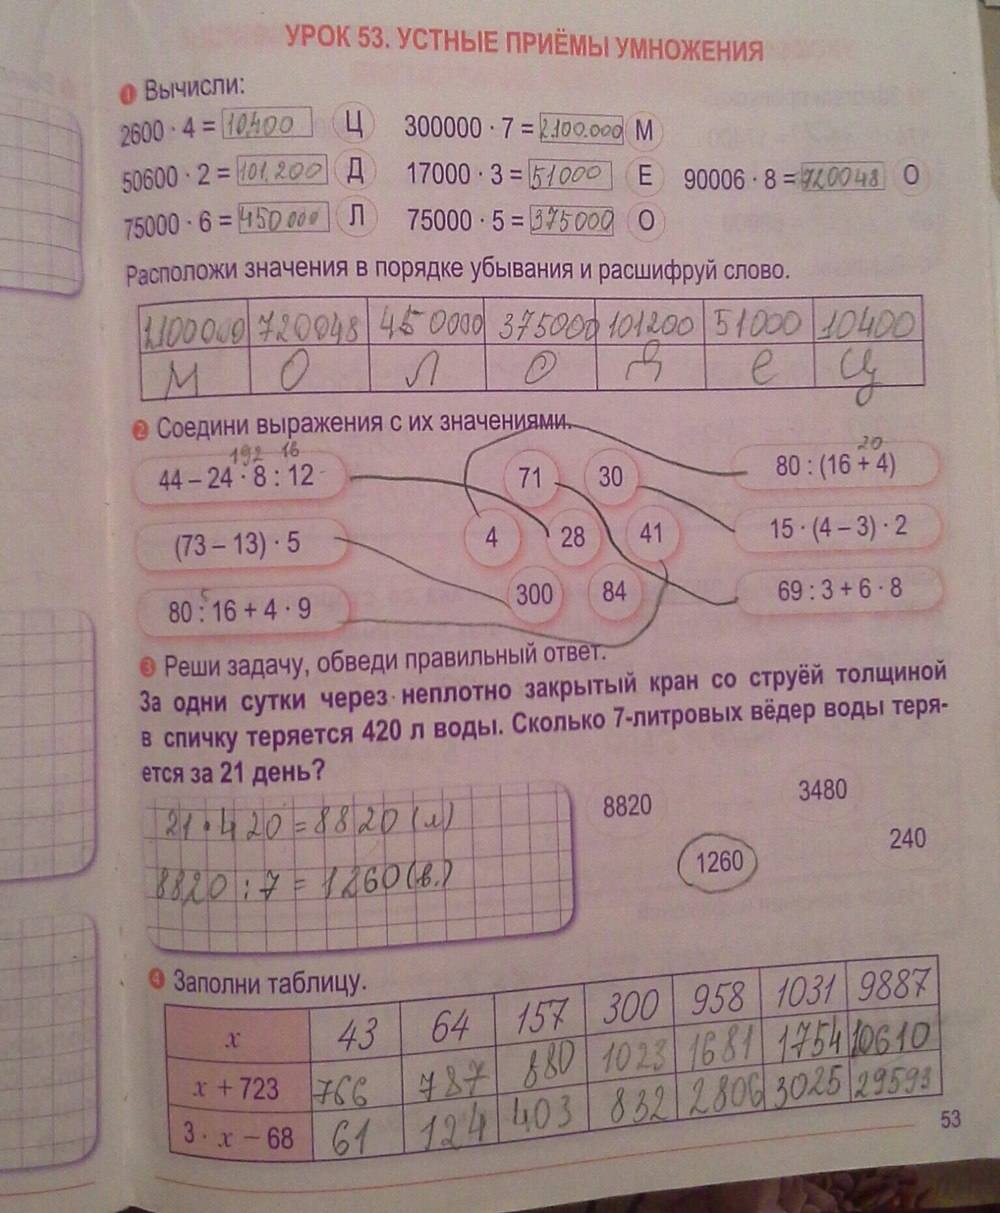 УРОК 53. УСТНЫЕ ПРИЁМЫ УМНОЖЕНИЯ
1 Вычисли:
2600 · 4 = 10400 Ц 300000 · 7 = 2100.000 М
50600 · 2 = 101.200 Д 17000 · 3 = 51000 Е 90006 · 8 = 720048 О
75000 · 6 = 450000 Л 75000 · 5 = 375000 О
Расположи значения в порядке убывания и расшифруй слово.
2100000 720048 450000 375000 101200 51000 10400
М О Л О Д е ц
2 Соедини выражения с их значениями.
192 16 20
44 – 24 · 8 : 12 71 30 80 : (16 + 4)
(73 – 13) · 5 4 28 41 15 · (4 – 3) · 2
5
80 : 16 + 4 · 9 300 84 69 : 3 + 6 · 8
3 Реши задачу, обведи правильный ответ.
За одни сутки через неплотно закрытый кран со струёй толщиной
в спичку теряется 420 л воды. Сколько 7-литровых вёдер воды теря-
ется за 21 день?
21 · 420 = 8820 (л) 8820 3480
8820 : 7 = 1260 (в.) 1260 240
4 Заполни таблицу.
x 43 64 157 300 958 1031 9887
x + 723 766 787 880 1023 1681 1754 10610
3 · x – 68 61 124 403 832 2806 3025 29593
53